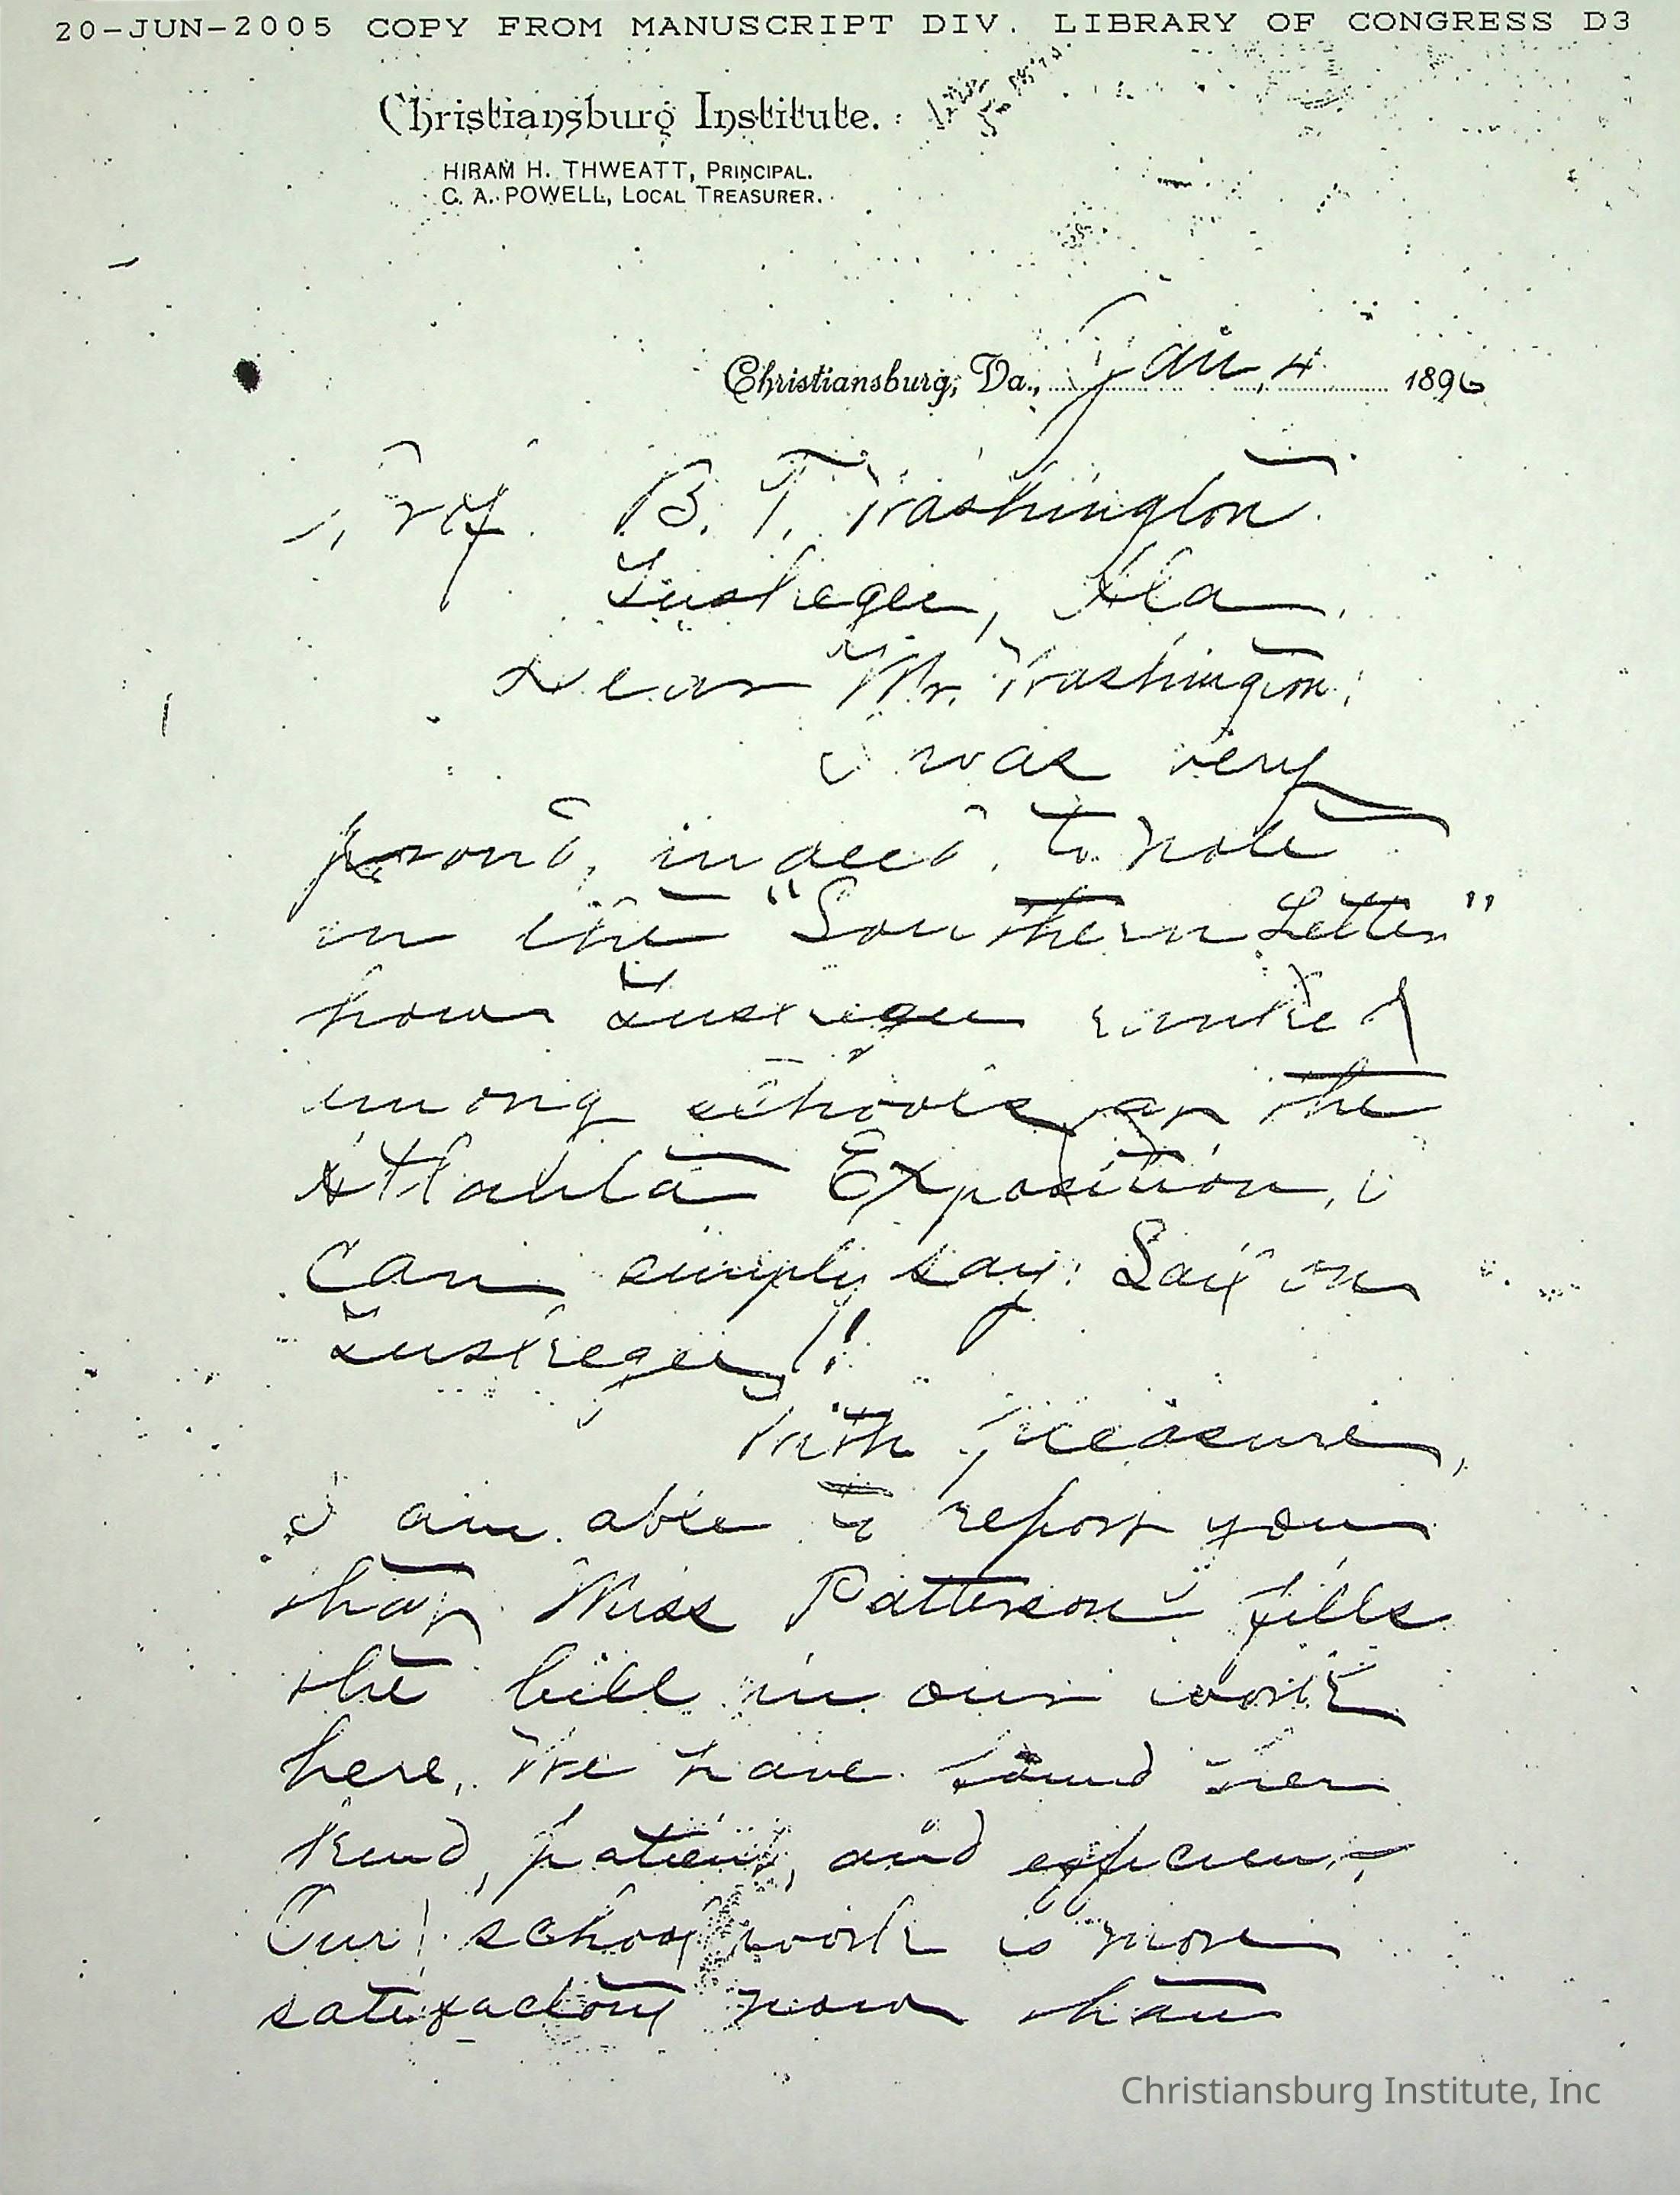 20-JUN-2005 COPY FROM MANUSCRIPT DIV. LIBRARY OF CONGRESS D3
Christiansburg Institute.
HIRAM H. THWEATT, PRINCIPAL.
C. A. POWELL, LOCAL TREASURER.
Christiansburg, Va., Jan, 4 1896
Prof. B. T. Washington.
Tuskegee, Ala.
Dear Mr. Washington:
I was very
proud, indeed, to note
in the "Southern Letter"
how Tuskegee ranked
among schools at the
Atlanta Exposition, I
can simply say: Lay on
Tuskegee!!
With pleasure,
I am able to report you
that Miss Patterson fills
the bill in our work
here. We have found her
kind, patient, and efficient
Our school work is more
satisfactory now than
Christiansburg Institute, Inc